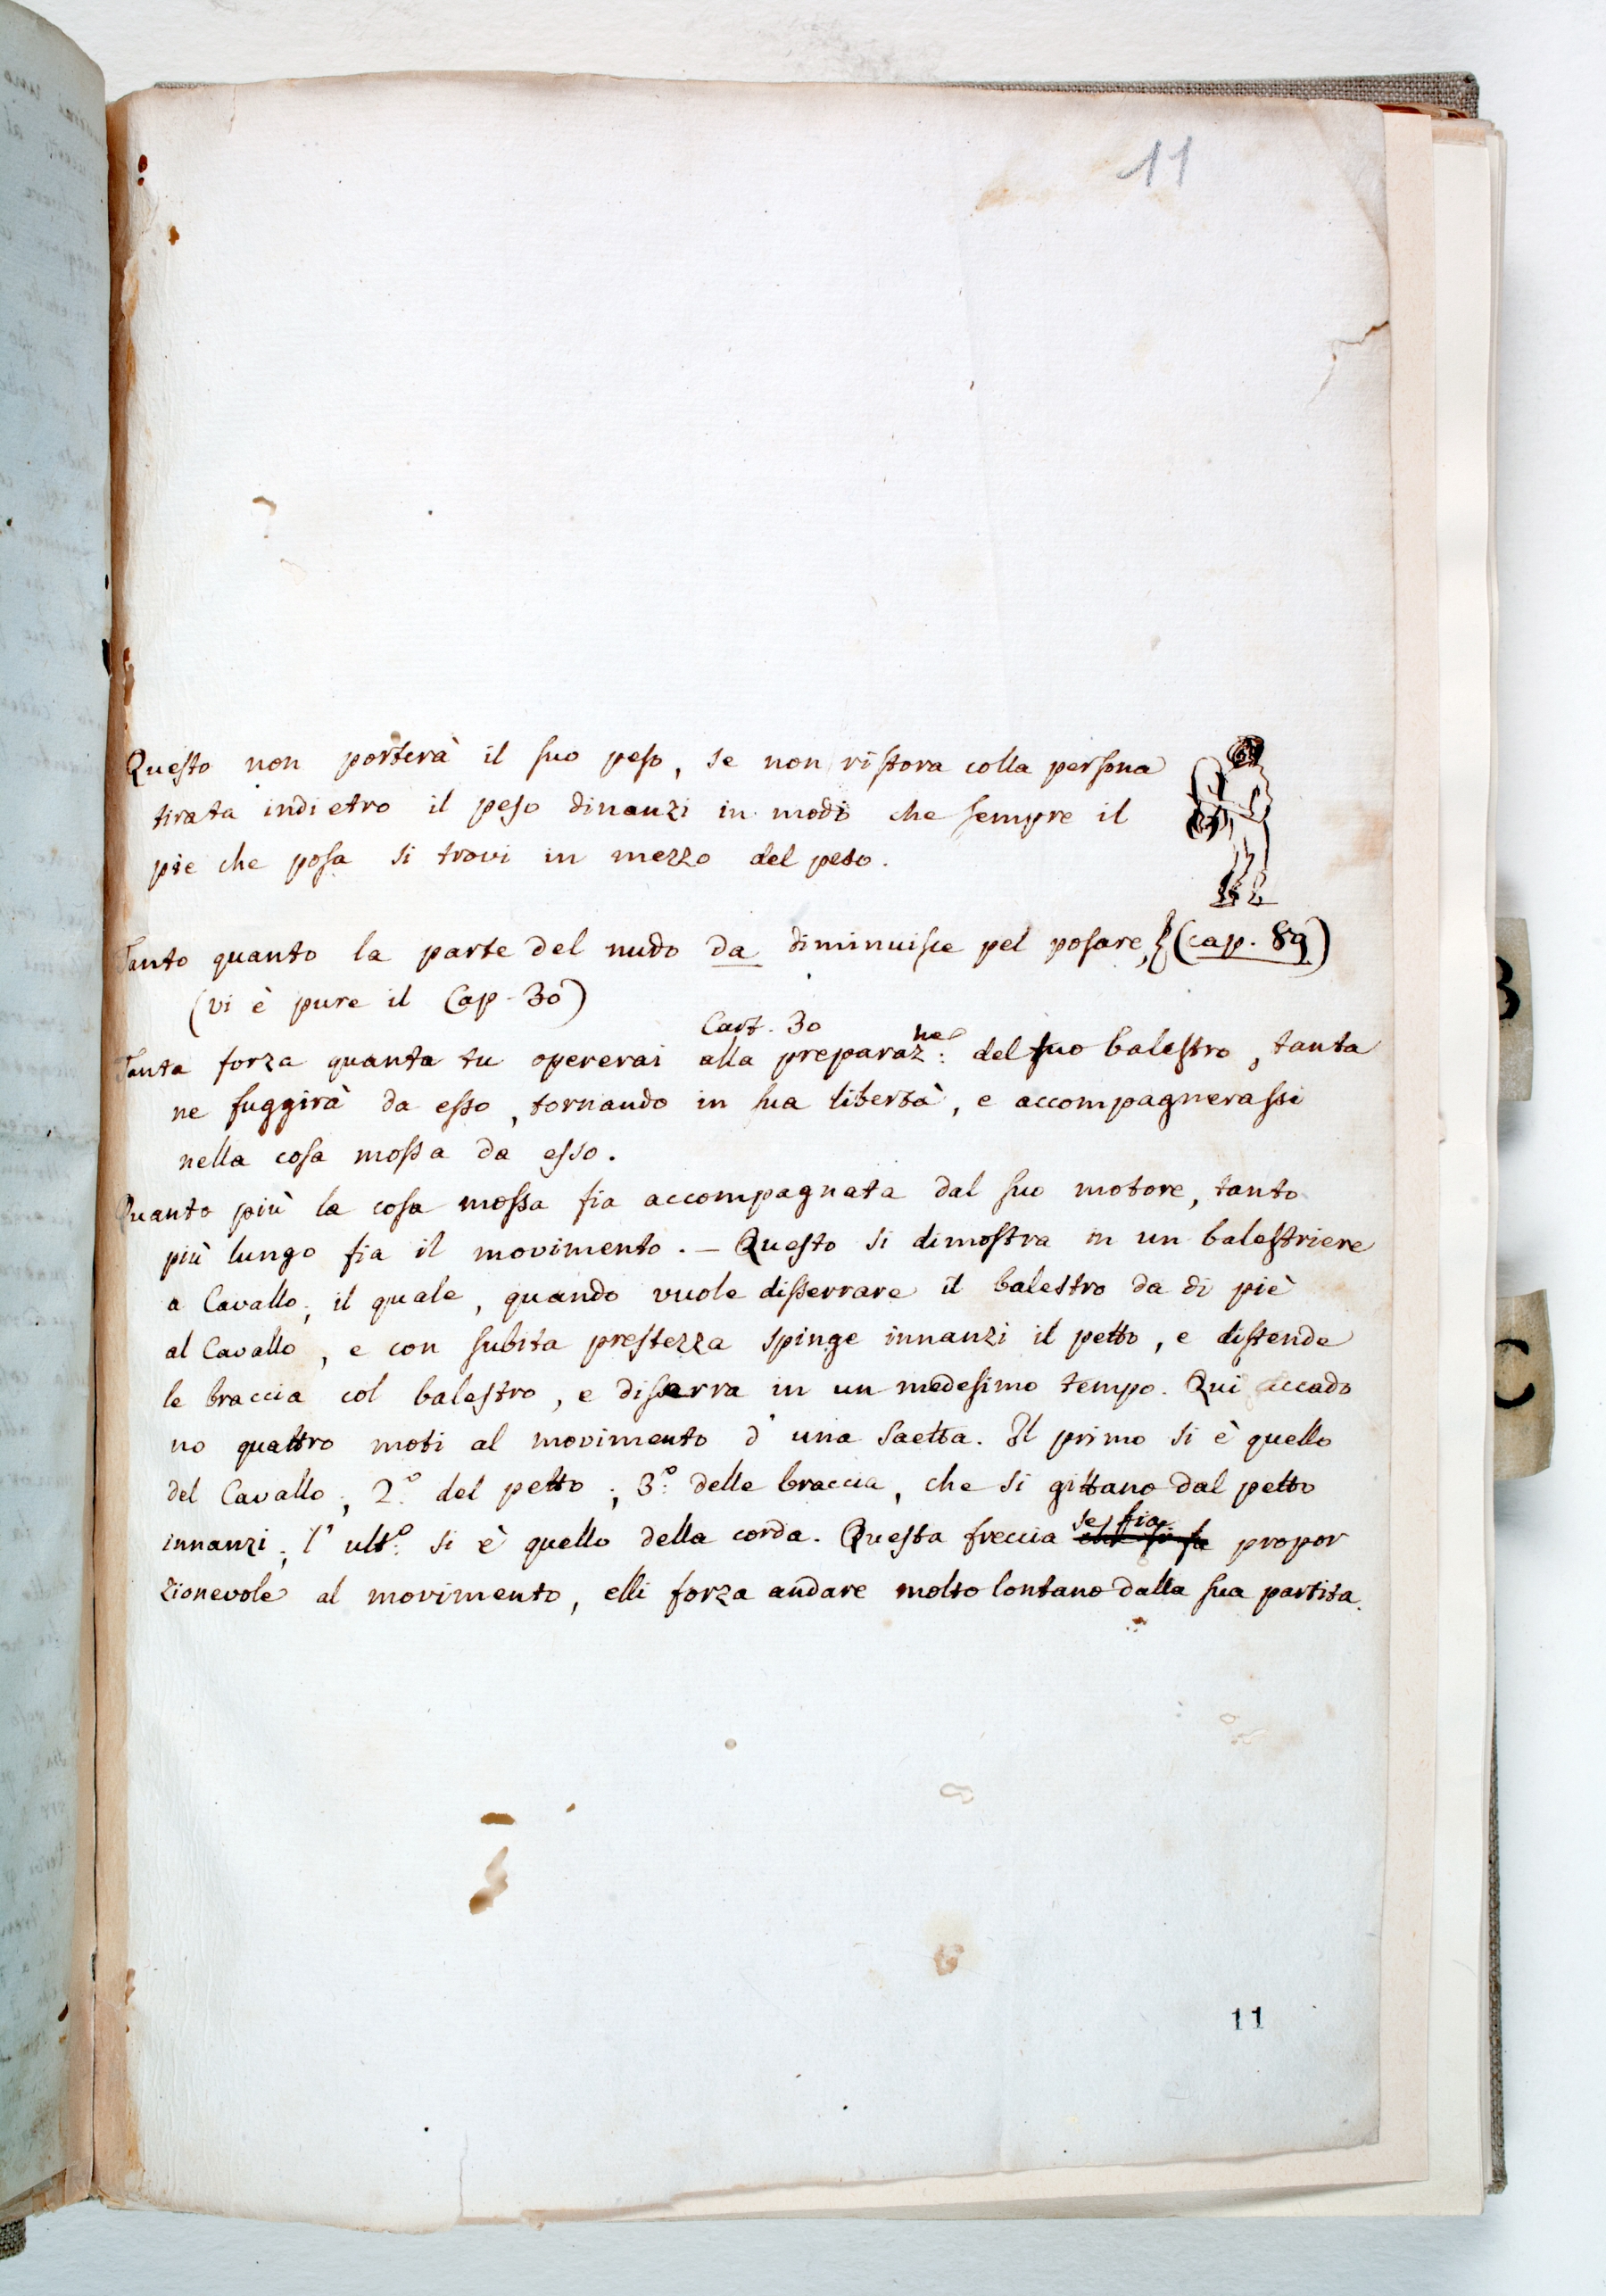 11
Questo non porterà il suo peso, se non ristora colla persona
tirata indietro il peso dinanzi in modo che sempre il
piè che posa si trovi in mezzo del peso.
Tanto quanto la parte del nudo da diminuisce pel posare, (cap. 89)
(vi è pure il Cap. 30)
Cart. 30
Tanta forza quanta tu opererai alla preparaz.ne del suo balestro, tanta
ne fuggirà da esso, tornando in sua libertà, e accompagnerassi
nella cosa mossa da esso.
Quanto più la cosa mossa fia accompagnata dal suo motore, tanto
più lungo fia il movimento. – Questo si dimostra in un balestriere
a Cavallo; il quale, quando vuole disserrare il balestro da di piè
al Cavallo, e con subita prestezza spinge innanzi il petto, e distende
le braccia col balestro, e diserra in un medesimo tempo. Qui accado
no quattro moti al movimento d'una saetta. Il primo si è quello
del Cavallo; 2.º del petto; 3.º delle braccia, che si gittano dal petto
innanzi; l'ult.º si è quello della corda. Questa freccia se fia propor
zionevole al movimento, elli forza andare molto lontano dalla sua partita.
11
B
C